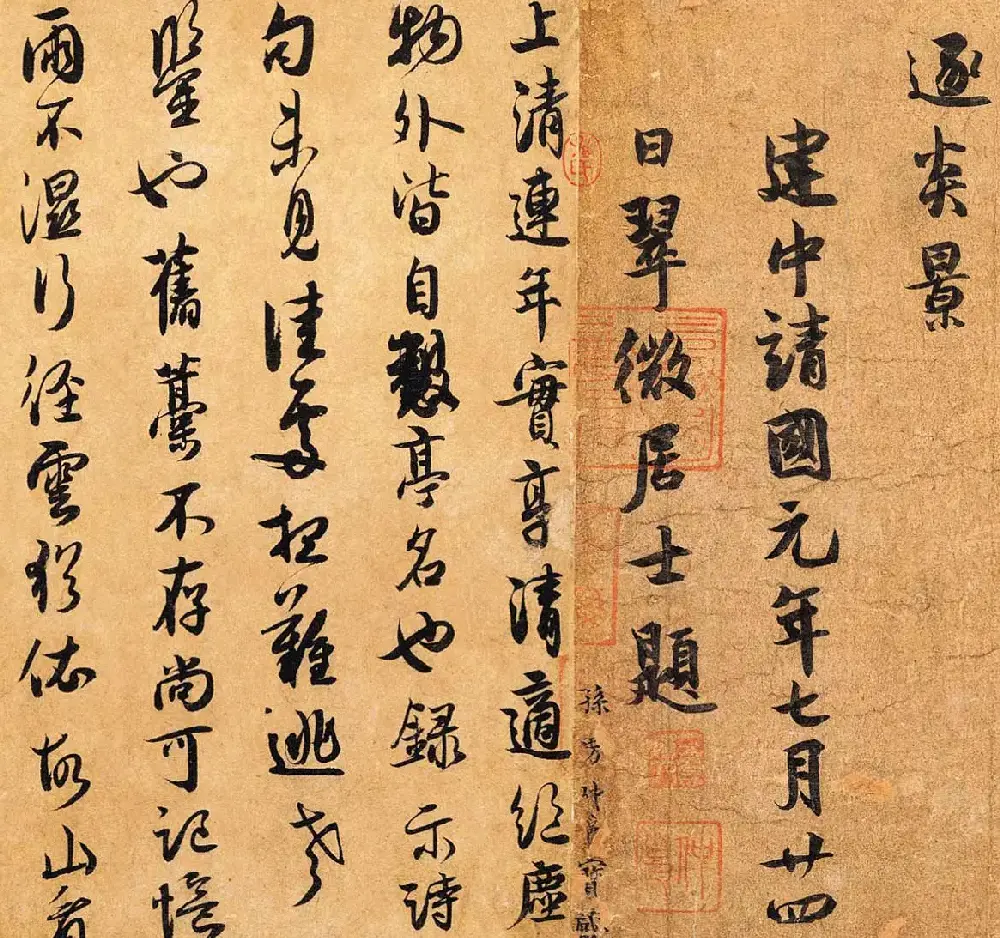 逐炎景
建中靖國元年七月廿四
日翠微居士題
孫
上清連年實享清適經虛
物外皆自製亭名也錄示詩
句未見佳處難逃
鑒也舊藁不存尚可記憶
雨不濕行徑雲猶依故山看